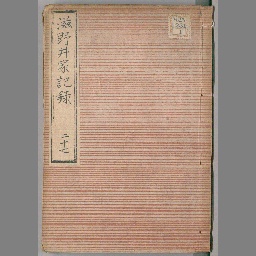 滋野井家記録
二十七